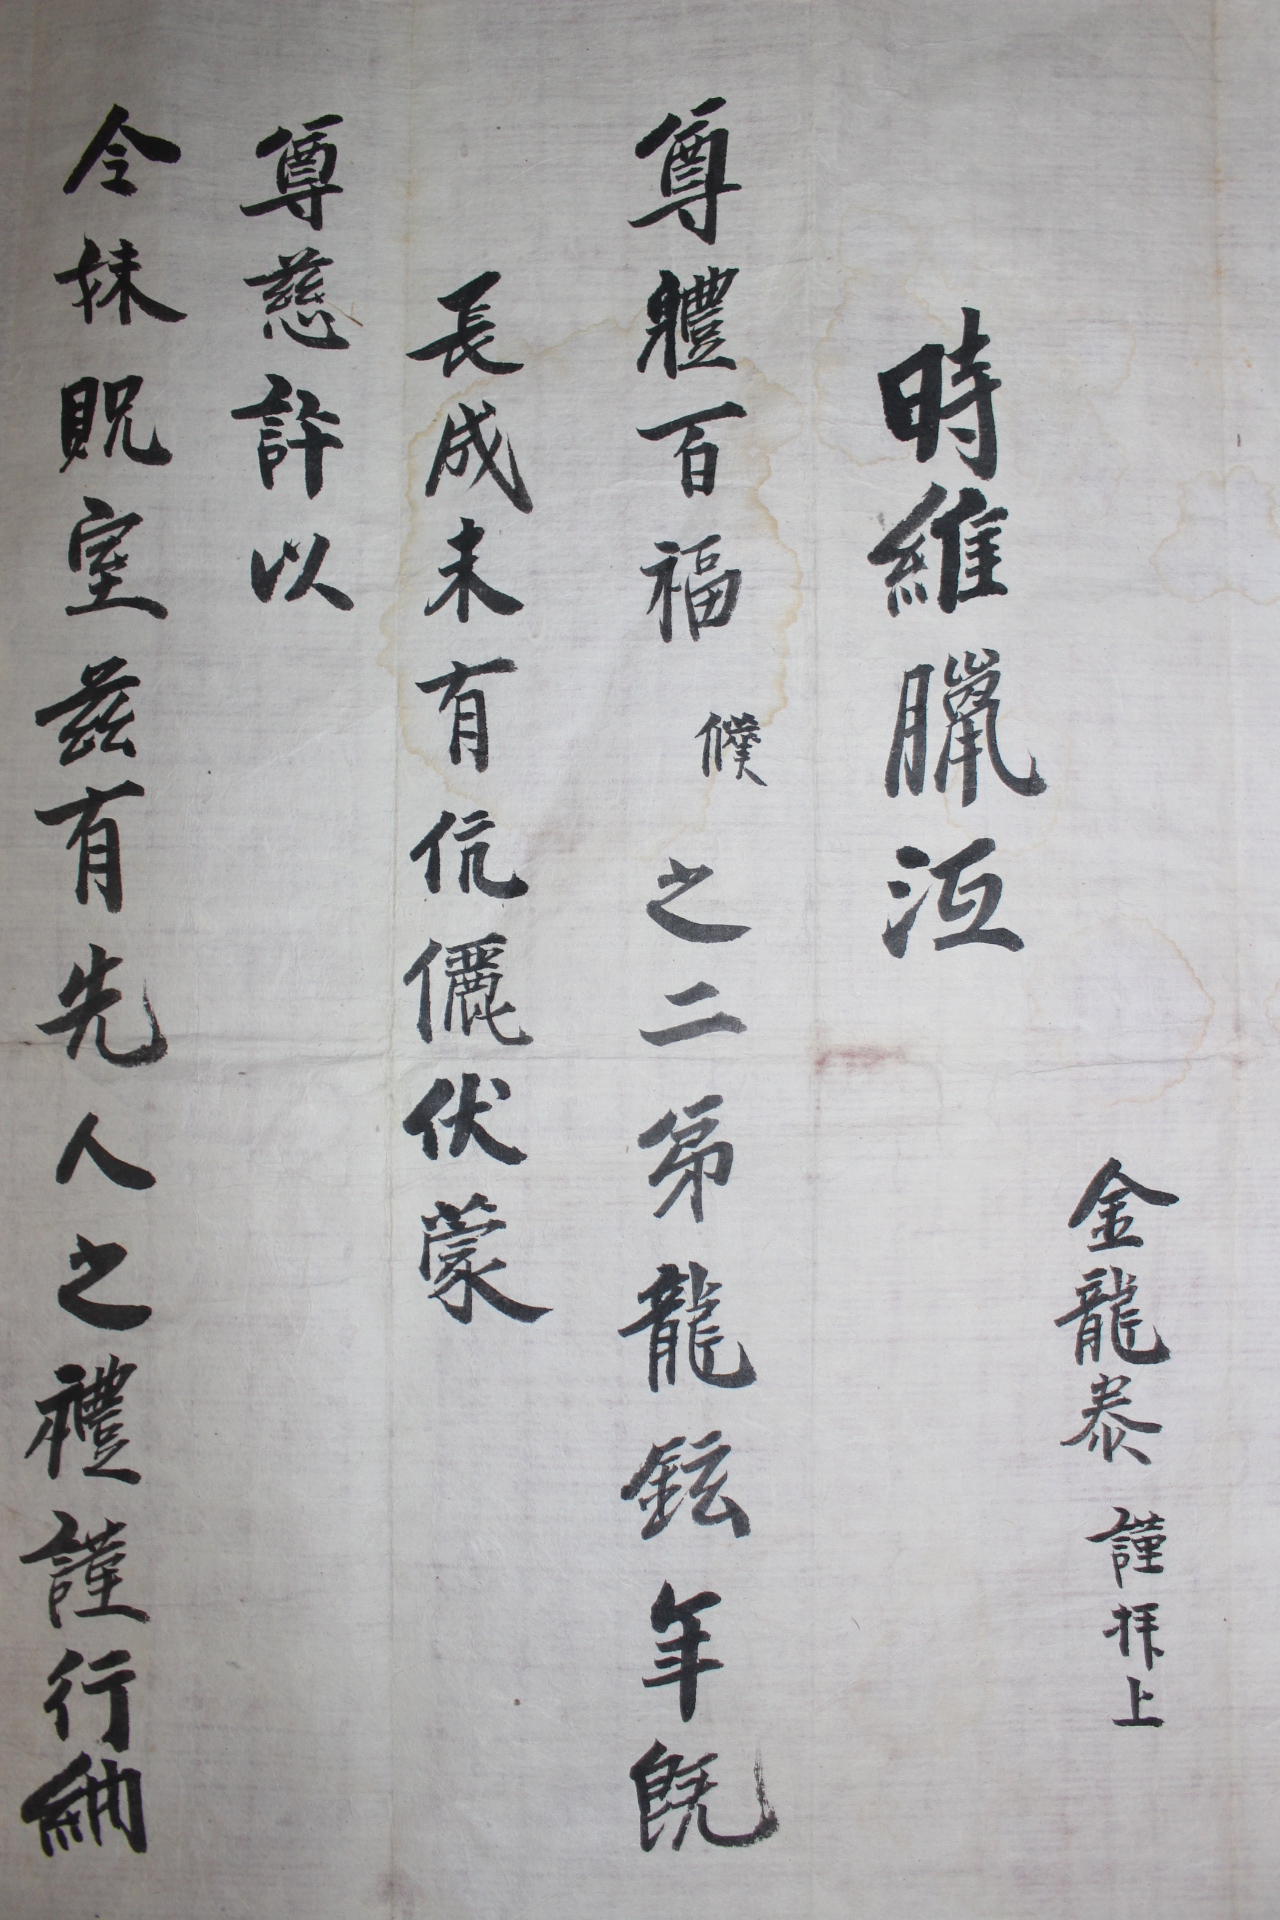 金龍泰 謹拜上
時維臘沍
尊體百福 僕 之二弟龍鉉年旣
長成未有伉儷伏蒙
尊慈許以
令妹貺室玆有先人之禮謹行納